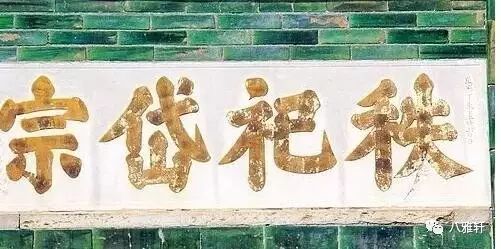 秩祀岱宗
八雅轩